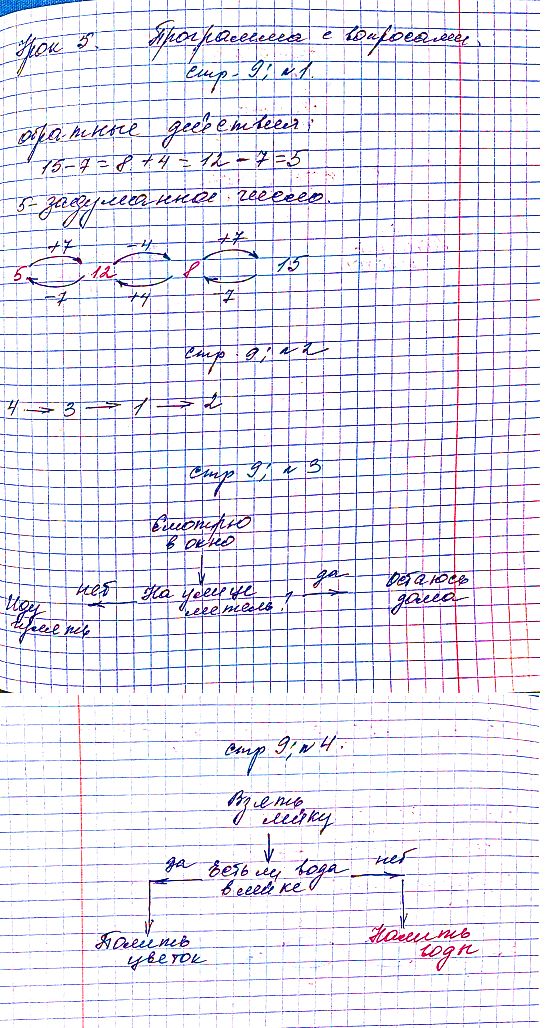 Урок 5. Программа с вопросами.
стр 9; №1.
обратные действия:
15-7=8+4=12-7=5
5- задуманное число.
+7 -4 +7
5 12 8 15
-7 +4 -7
стр 9; №2
4 → 3 → 1 → 2
стр 9; №3
Смотрю
в окно
Иду гулять ← нет На улице метель? да → Остаюсь дома
стр 9; №4.
Взять
лейку
да Есть ли вода нет
в лейке
Полить Налить
цветок воды